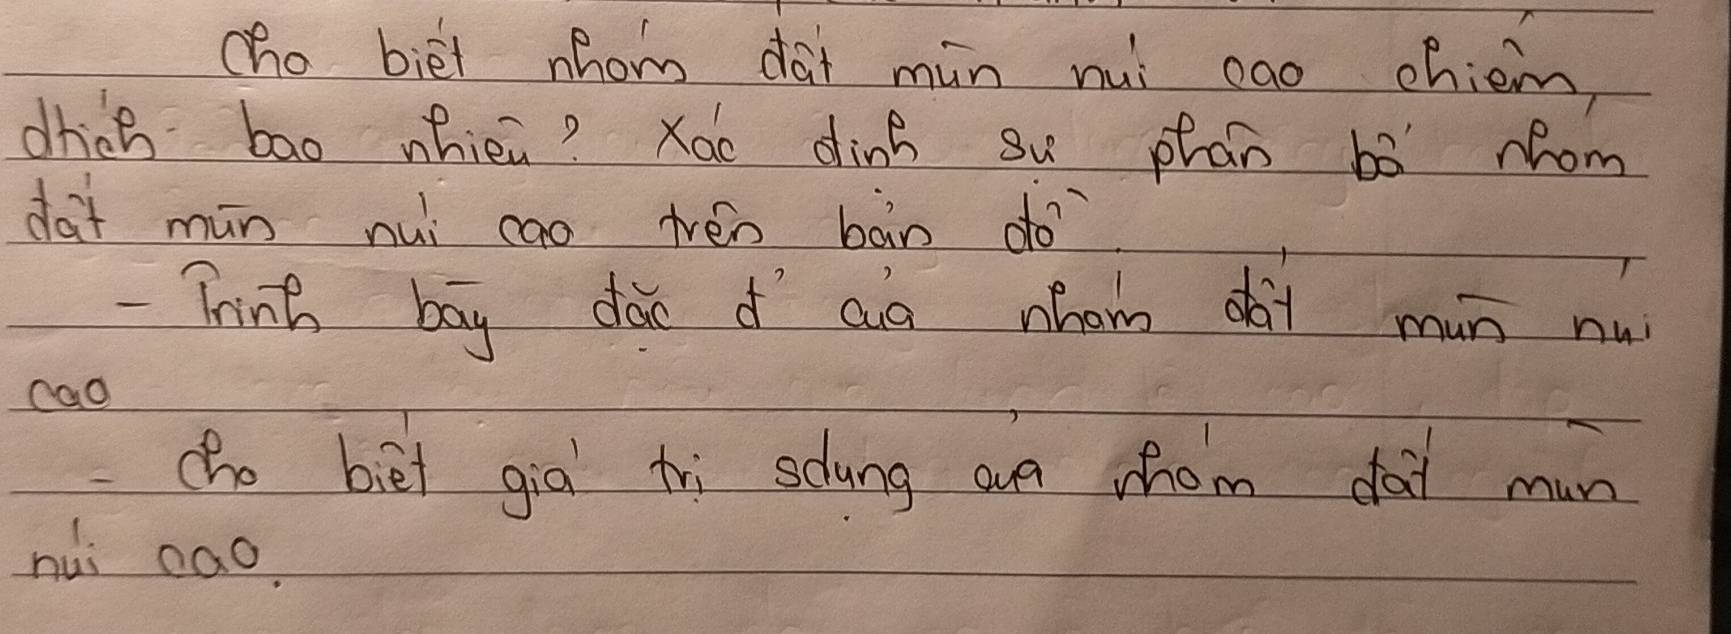 Cho biết nhóm đất mùn núi cao chiếm
dtích bao nhiêu? Xác định sự phân bố nhóm
đất mùn núi cao trên bản đồ.
- Trình bày đặc đ' của nhóm đất mùn núi
cao
- Cho biết giá trị sdụng của nhóm đất mùn
núi cao.